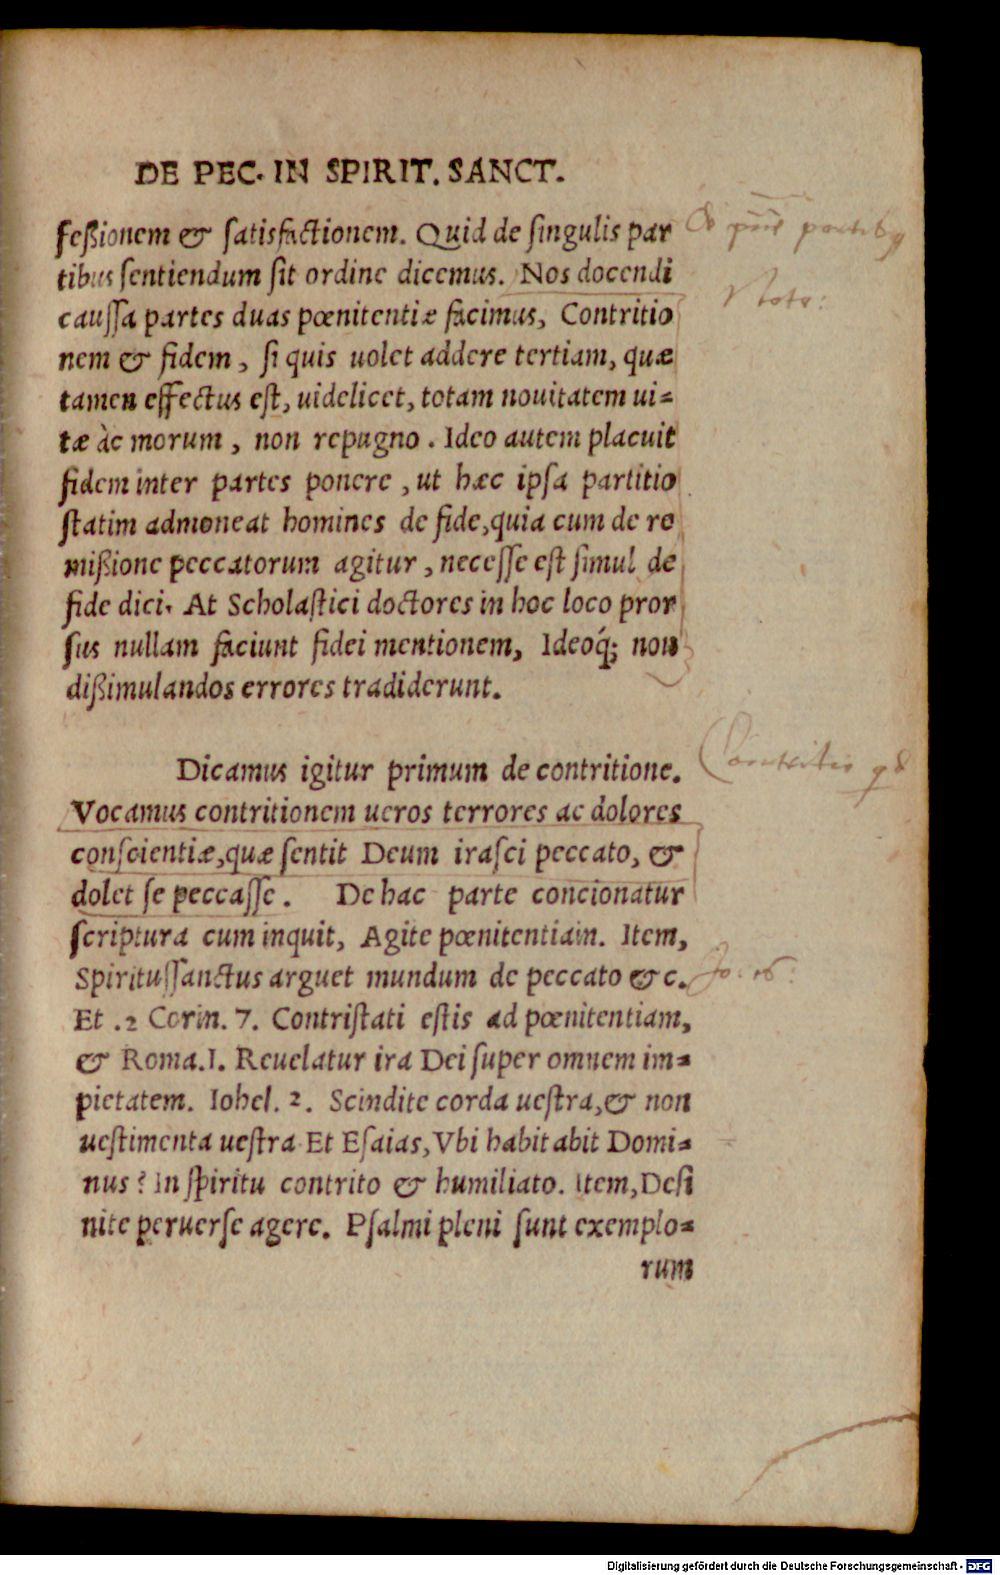 DE PEC. IN SPIRIT. SANCT.
feßionem & ſatisfactionem. Quid de ſingulis par
tibus ſentiendum ſit ordine dicemus. Nos docendi
cauſſa partes duas pœnitentiæ facimus, Contritio
nem & fidem, ſi quis uolet addere tertiam, quæ
tamen effectus eſt, uidelicet, totam nouitatem ui=
tæ àc morum, non repugno. Ideo autem placuit
fidem inter partes ponere, ut hæc ipſa partitio
ſtatim admoneat homines de fide, quia cum de re
mißione peccatorum agitur, neceſſe eſt ſimul de
fide dici. At Scholaſtici doctores in hoc loco pror
ſus nullam faciunt fidei mentionem, Ideoq́; non
dißimulandos errores tradiderunt.
Dicamus igitur primum de contritione.
Vocamus contritionem ueros terrores ac dolores
conſcientiæ, quæ ſentit Deum iraſci peccato, &
dolet ſe peccaſſe. De hac parte concionatur
ſcriptura cum inquit, Agite pœnitentiam. Item,
Spirituſſanctus arguet mundum de peccato & c.
Et .2 Corin. 7. Contriſtati eſtis ad pœnitentiam,
& Roma.I. Reuelatur ira Dei ſuper omnem im=
pietatem. Iohel. 2. Scindite corda ueſtra, & non
ueſtimenta ueſtra Et Eſaias, Vbi habitabit Domi=
nus? In ſpiritu contrito & humiliato. Item, Deſi
nite peruerſe agere. Pſalmi pleni ſunt exemplo=
rum
partibus
Nota:
Contritio qd
Jo. 16:
Digitalisierung gefördert durch die Deutsche Forschungsgemeinschaft - DFG